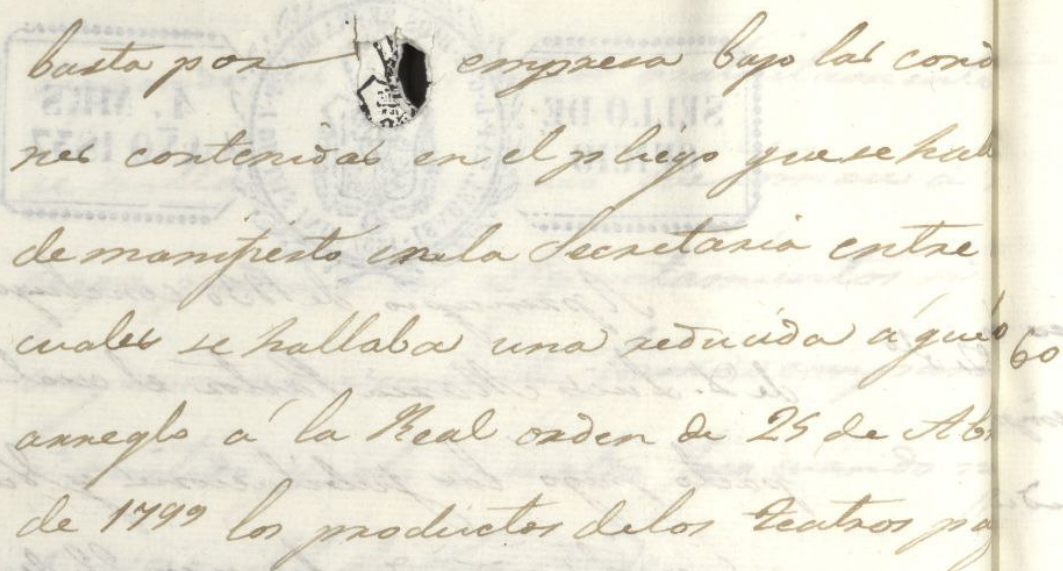 basta por empresa bajo las cond
nes contenidas en el pliego que se hall
de manifiesto en la Secretaria entre
cuales se hallaba una reducida á que
arreglo á la Real orden de 25 de Abr
de 1799 los productos de los Teatros pa
60